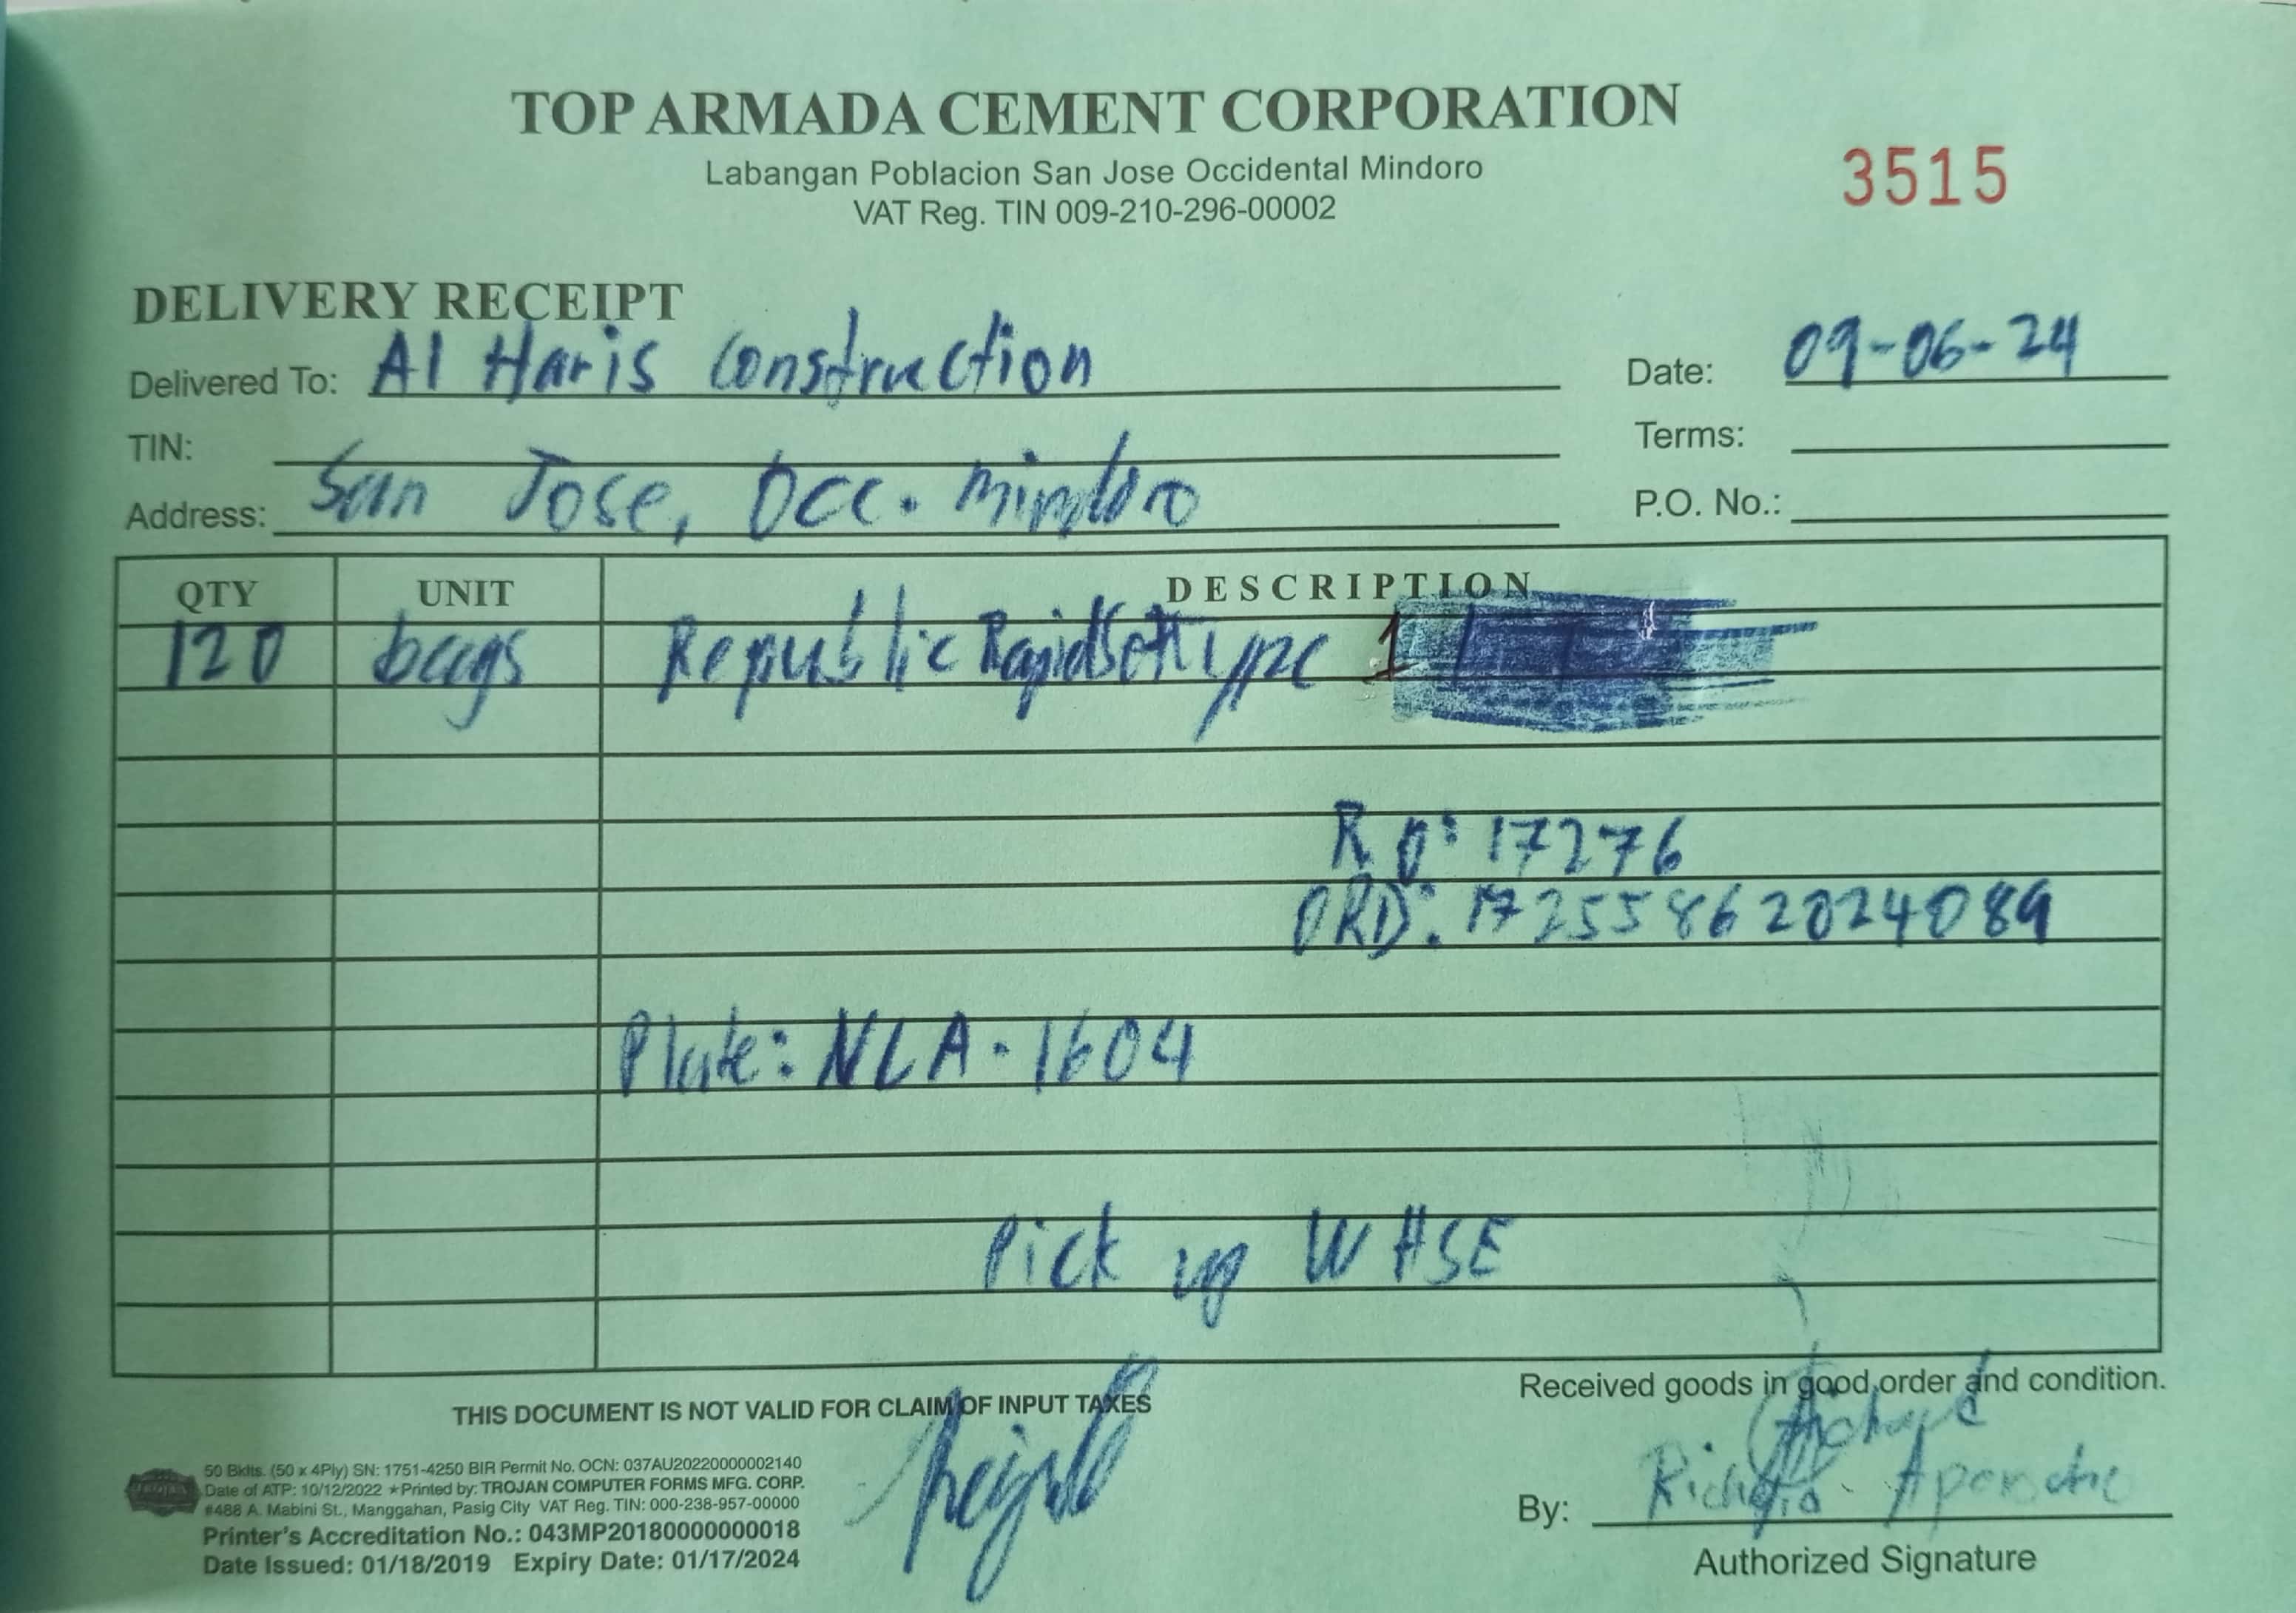 TOP ARMADA CEMENT CORPORATION
Labangan Poblacion San Jose Occidental Mindoro
VAT Reg. TIN 009-210-296-00002
3515
DELIVERY RECEIPT
Delivered To: Al Haris Construction
Date: 09-06-24
TIN:
Terms:
Address: San Jose, Occ. Mindoro
P.O. No.:
QTY UNIT DESCRIPTION
120 bags Republic Rapidset Type 1
RO: 17276
ORD: 17255862024089
Plate: NLA-1604
Pick up WHSE
Received goods in good order and condition.
THIS DOCUMENT IS NOT VALID FOR CLAIM OF INPUT TAXES
50 Bklts. (50 x 4Ply) SN: 1751-4250 BIR Permit No. OCN: 037AU20220000002140
Date of ATP: 10/12/2022 ★Printed by: TROJAN COMPUTER FORMS MFG. CORP.
#488 A. Mabini St., Manggahan, Pasig City VAT Reg. TIN: 000-238-957-00000
Printer's Accreditation No.: 043MP20180000000018
Date Issued: 01/18/2019 Expiry Date: 01/17/2024
By:
Authorized Signature